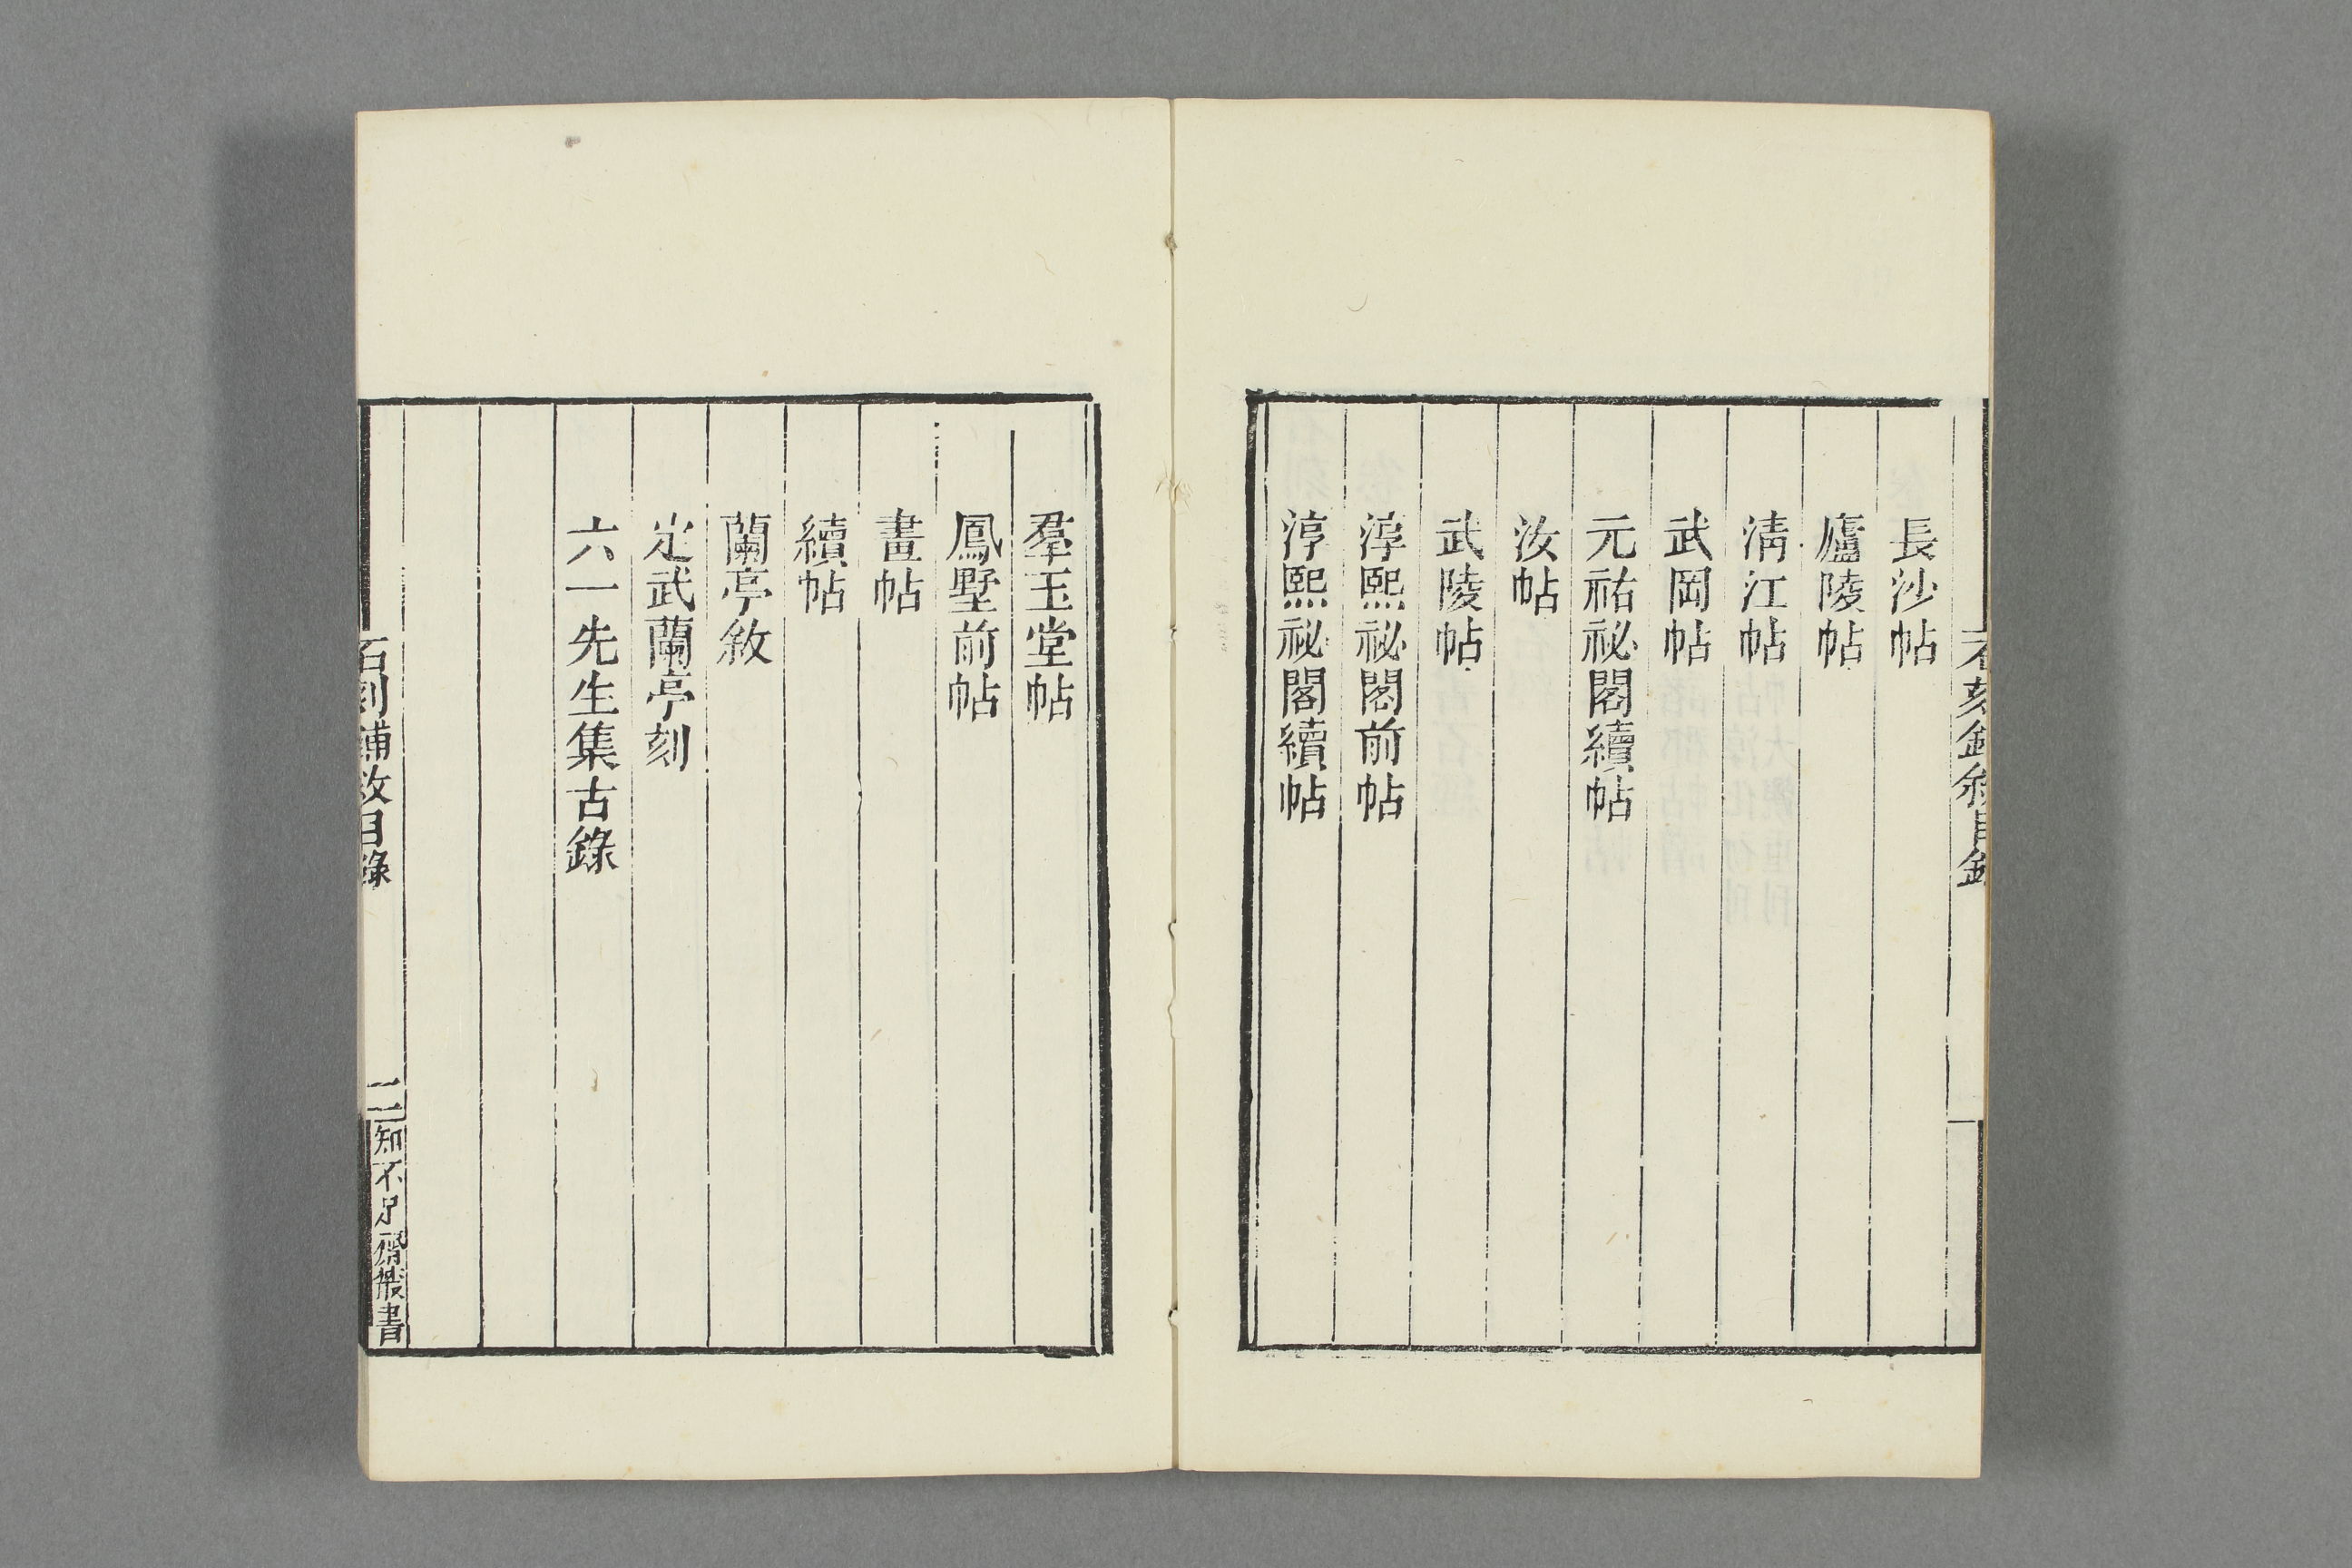 長沙帖
廬陵帖
清江帖
武岡帖
元祐祕閣續帖
汝帖
武陵帖
淳熙祕閣前帖
淳熙祕閣續帖
羣玉堂帖
鳳墅前帖
畫帖
續帖
蘭亭敘
定武蘭亭刻
六一先生集古錄
石刻鋪敘目錄
二
知不足齋叢書